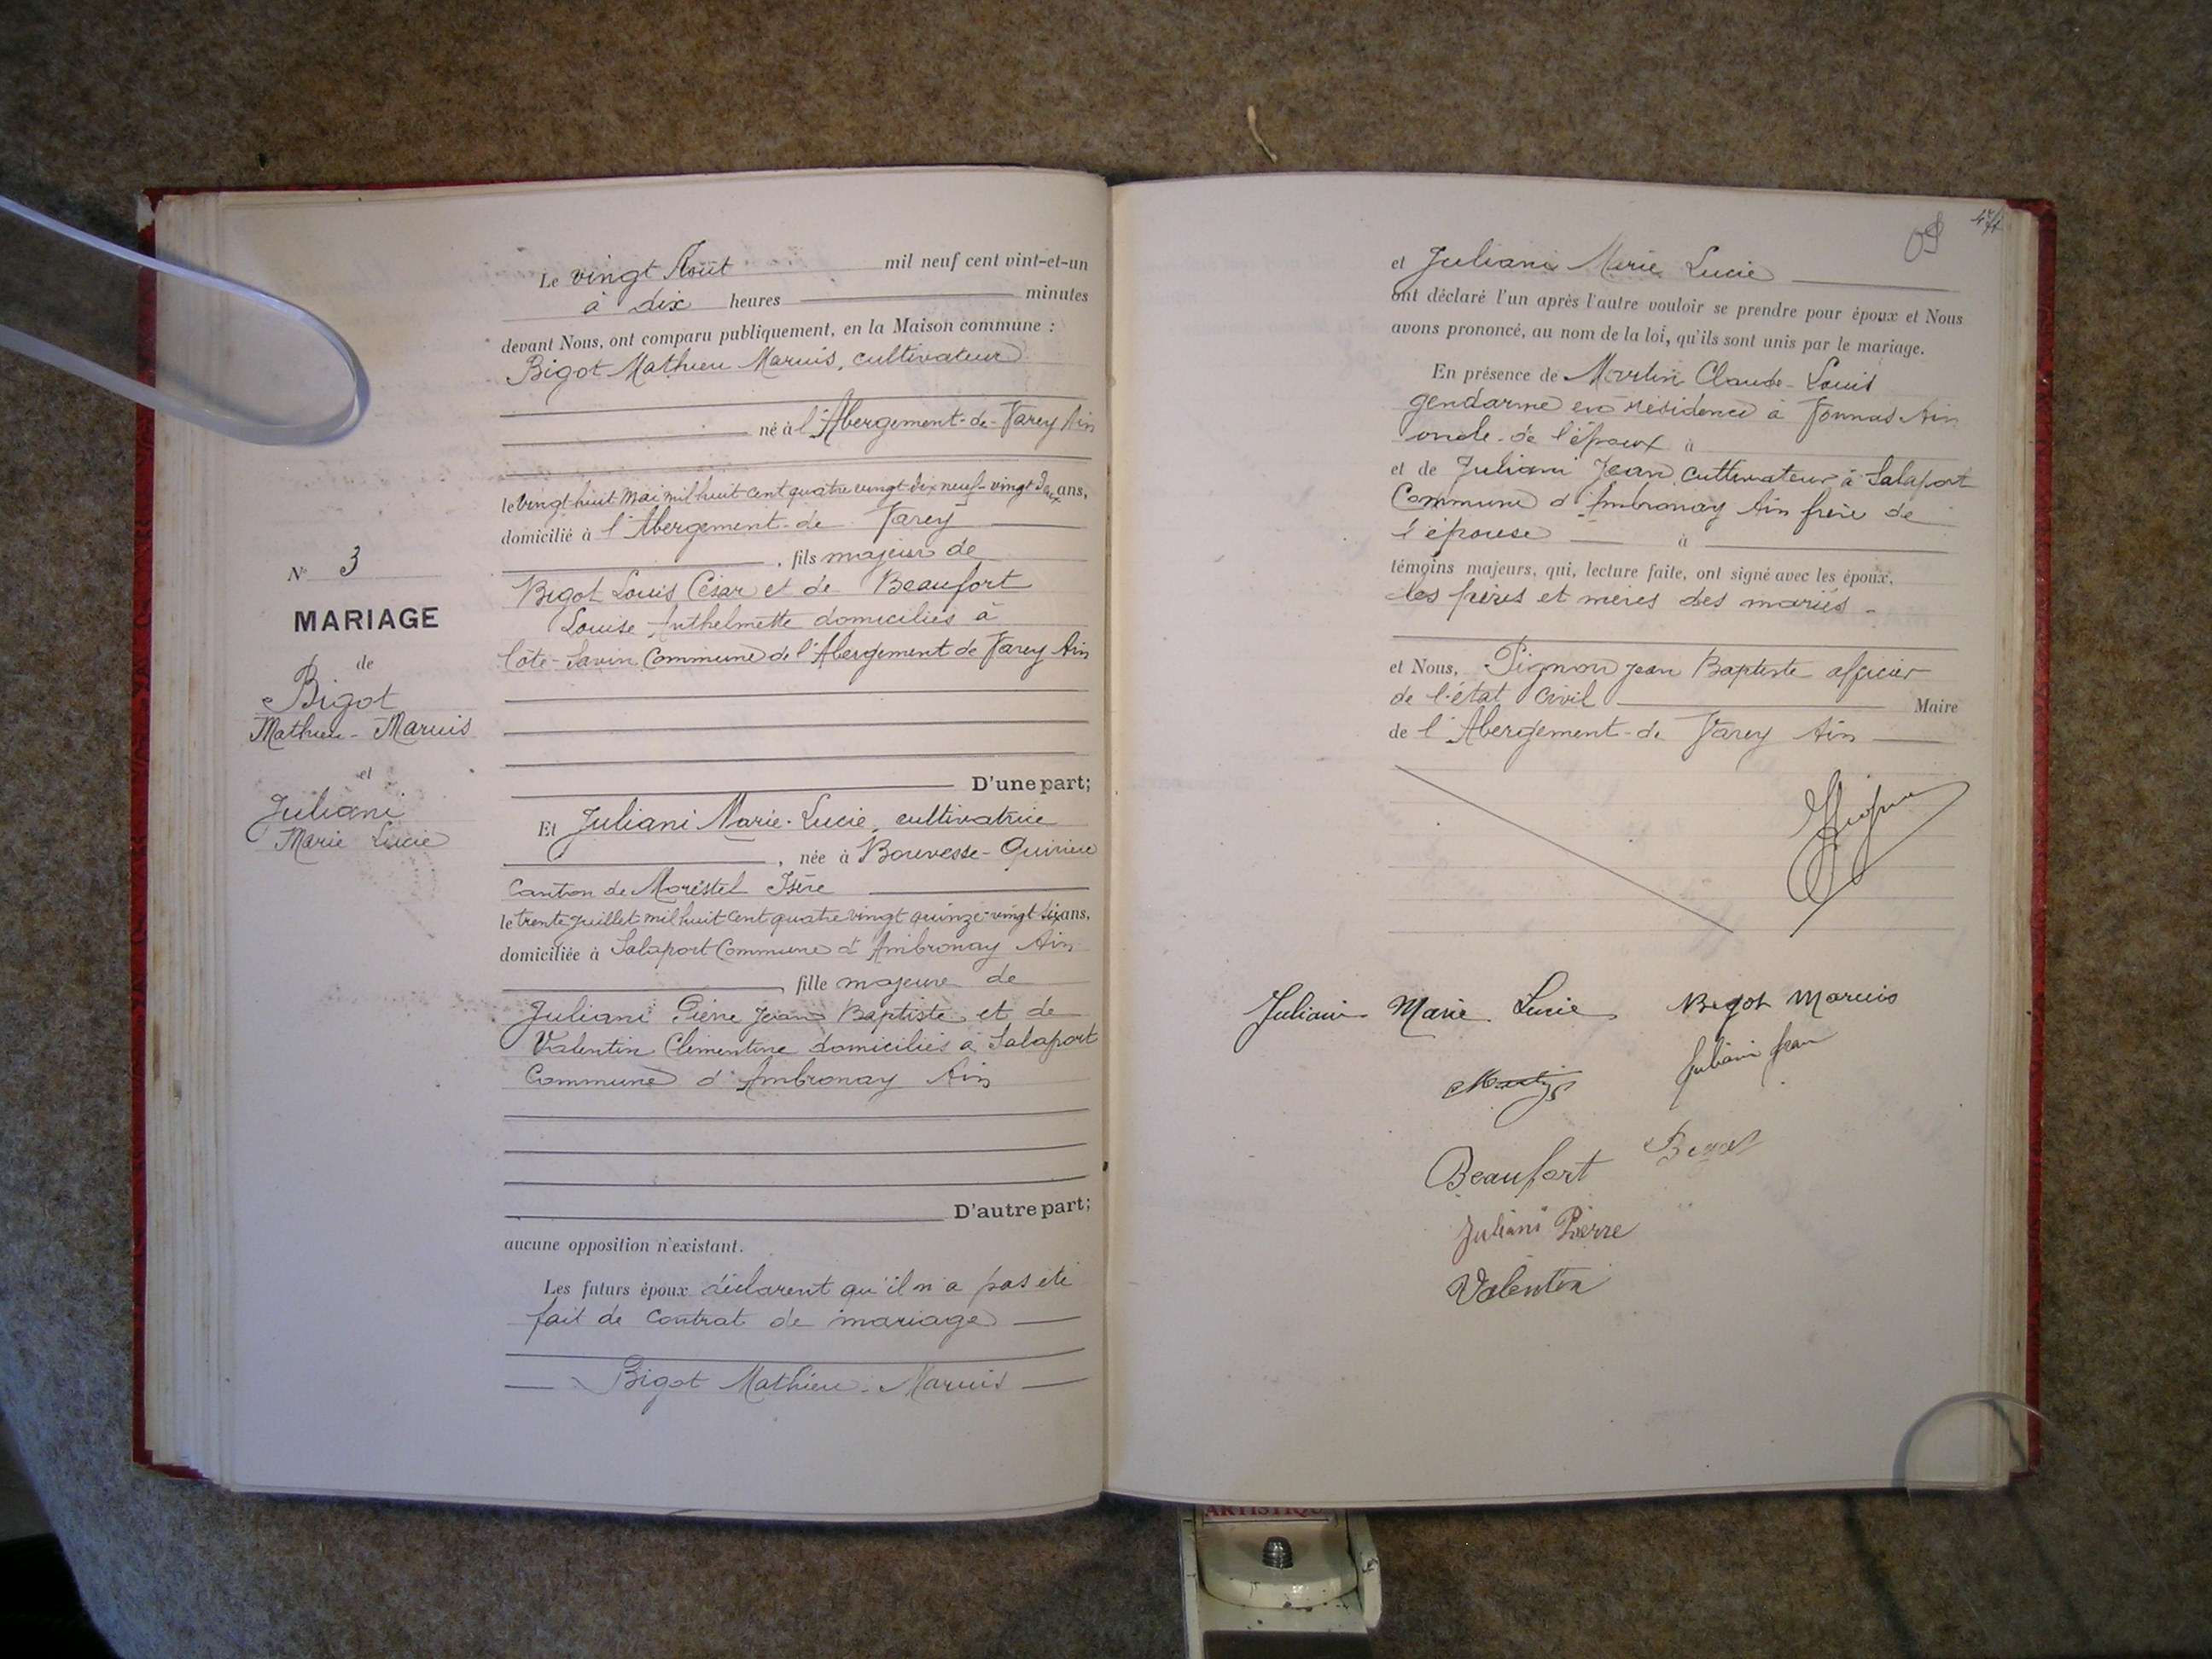 Le vingt Août mil neuf cent vint-et-un
à dix heures minutes
devant Nous, ont comparu publiquement, en la Maison commune :
Bigot Mathieu Marius, cultivateur
né à l'Abergement-de-Varey Ain
le vingt huit Mai mil huit cent quatre vingt dix neuf - vingt deux ans,
domicilié à l'Abergement-de Varey
, fils majeur de
Bigot Louis César et de Beaufort
Louise Anthelmette domiciliés à
Côte-Savin Commune de l'Abergement de Varey Ain
D'une part;
N° 3
MARIAGE
de
Bigot
Mathieu - Marius
et
Juliani
Marie Lucie
Et Juliani Marie-Lucie, cultivatrice
, née à Bouvesse-Quirieu
Canton de Morestel Isère
le trente Juillet mil huit cent quatre vingt quinze - vingt six ans,
domiciliée à Salaport Commune d'Ambronay Ain
, fille majeure de
Juliani Pierre Jean Baptiste et de
Valentin Clémentine domiciliés à Salaport
Commune d'Ambronay Ain
D'autre part;
aucune opposition n'existant.
Les futurs époux déclarent qu'il n'a pas été
fait de contrat de mariage
Bigot Mathieu-Marius
et Juliani Marie Lucie
ont déclaré l'un après l'autre vouloir se prendre pour époux et Nous
avons prononcé, au nom de la loi, qu'ils sont unis par le mariage.
En présence de Martin Claude-Louis
gendarme en résidence à Vonnas Ain
oncle-de l'époux à
et de Juliani Jean, cultivateur à Salaport
Commune d'Ambronay Ain frère de
l'épouse à
témoins majeurs, qui, lecture faite, ont signé avec les époux,
les pères et mères des mariés -
et Nous, Pignon Jean Baptiste officier
de l'état civil Maire
de l'Abergement-de Varey Ain
Juliani Marie Lucie Bigot Marius
Martin Juliani Jean
Beaufort Bigot
Juliani Pierre
Valentin
ARTISTIQUE